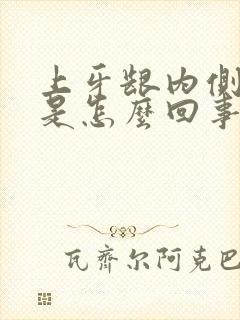 上牙龈内侧
是怎么回事
瓦齐尔阿克巴